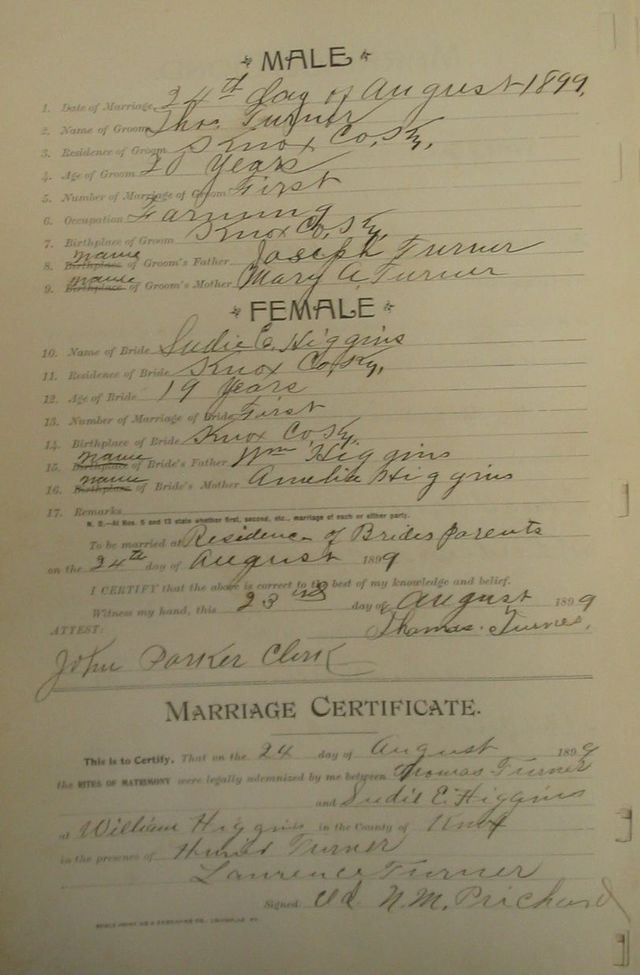 MALE
1. Date of Marriage 24th day of August 1899,
2. Name of Groom Thos. Turner
3. Residence of Groom Knox Co, Ky,
4. Age of Groom 20 Years
5. Number of Marriage of Groom First
6. Occupation Farming
7. Birthplace of Groom Knox Co, Ky,
name
8. Birthplace of Groom's Father Joseph Turner
name
9. Birthplace of Groom's Mother Mary A. Turner
FEMALE
10. Name of Bride Sudie E. Higgins
11. Residence of Bride Knox Co, Ky,
12. Age of Bride 19 Years
13. Number of Marriage of Bride First
14. Birthplace of Bride Knox Co, Ky.
name
15. Birthplace of Bride's Father Wm Higgins
name
16. Birthplace of Bride's Mother Amelia Higgins
17. Remarks
N. B.—At Nos. 5 and 13 state whether first, second, etc., marriage of each or either party.
To be married at Residence of Brides parents
on the 24th day of August 1899
I CERTIFY that the above is correct to the best of my knowledge and belief.
Witness my hand, this 23rd day of August 1899
ATTEST: Thomas Turner,
John Parker Clerk
MARRIAGE CERTIFICATE.
This is to Certify, That on the 24 day of August 1899
the RITES OF MATRIMONY were legally solemnized by me between Thomas Turner
and Sudie E. Higgins
at William Higgins in the County of Knox
in the presence of Turner
Laurence Turner
Signed N. M. Prichard